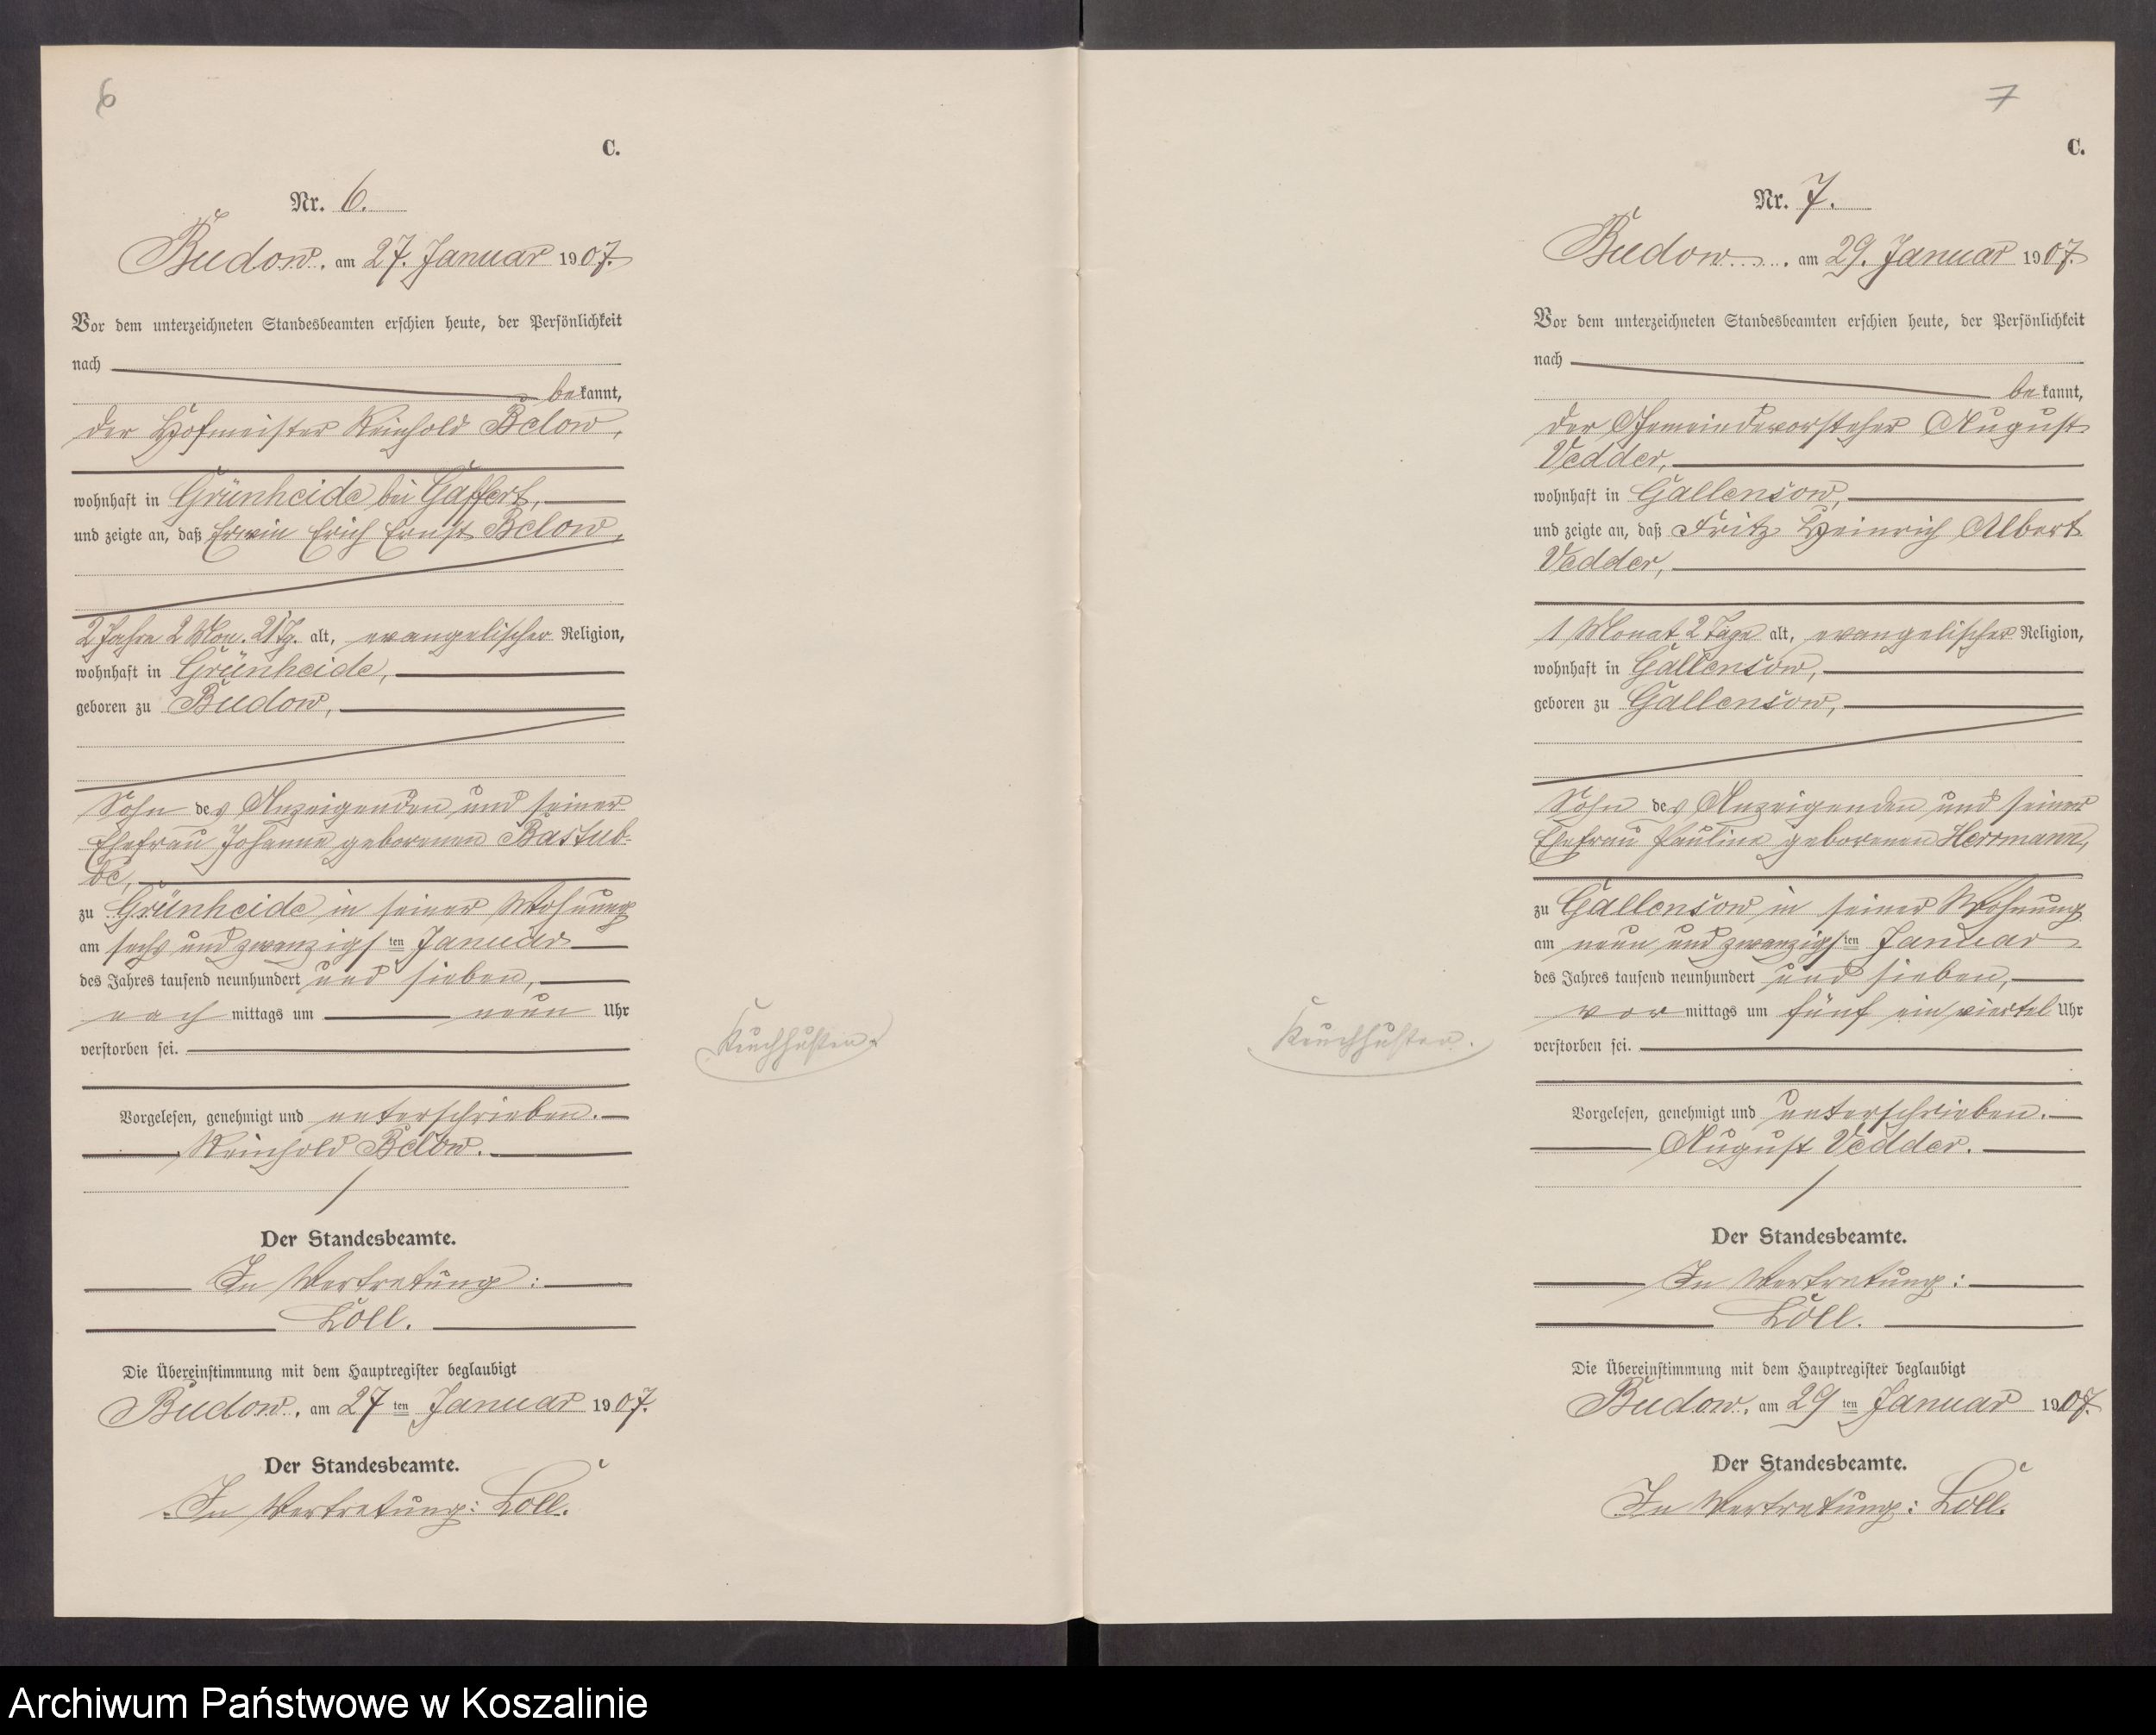 6
C.
Nr. 6.
Budow, am 27. Januar 1907.
Vor dem unterzeichneten Standesbeamten erschien heute, der Persönlichkeit
nach
bekannt,
der Hofmeister Reinhold Below,
wohnhaft in Grünheide bei Gaffert,
und zeigte an, daß Erwin Erich Ernst Below,
2 Jahre 2 Mon. 21 Tg. alt, evangelischer Religion,
wohnhaft in Grünheide,
geboren zu Budow,
Sohn des Anzeigenden und seiner
Ehefrau Johanne geborenen Bastub-
be,
zu Grünheide in seiner Wohnung
am sechs und zwanzigsten Januar
des Jahres tausend neunhundert und sieben,
nach mittags um neun Uhr
verstorben sei.
Keuchhusten.
Vorgelesen, genehmigt und unterschrieben.
Reinhold Below.
Der Standesbeamte.
In Vertretung:
Löll.
Die Übereinstimmung mit dem Hauptregister beglaubigt
Budow, am 27ten Januar 1907.
Der Standesbeamte.
In Vertretung: Löll.
7
C.
Nr. 7.
Budow, am 29. Januar 1907.
Vor dem unterzeichneten Standesbeamten erschien heute, der Persönlichkeit
nach
bekannt,
der Gemeindevorsteher August
Vedder,
wohnhaft in Gallensow,
und zeigte an, daß Fritz Heinrich Albert
Vedder,
1 Monat 2 Tage alt, evangelischer Religion,
wohnhaft in Gallensow,
geboren zu Gallensow,
Sohn des Anzeigenden und seiner
Ehefrau Pauline geborenen Herrmann,
zu Gallensow in seiner Wohnung
am neun und zwanzigsten Januar
des Jahres tausend neunhundert und sieben,
vor mittags um fünf ein viertel Uhr
verstorben sei.
Keuchhusten.
Vorgelesen, genehmigt und unterschrieben.
August Vedder.
Der Standesbeamte.
In Vertretung:
Löll.
Die Übereinstimmung mit dem Hauptregister beglaubigt
Budow, am 29ten Januar 1907.
Der Standesbeamte.
In Vertretung: Löll.
Archiwum Państwowe w Koszalinie